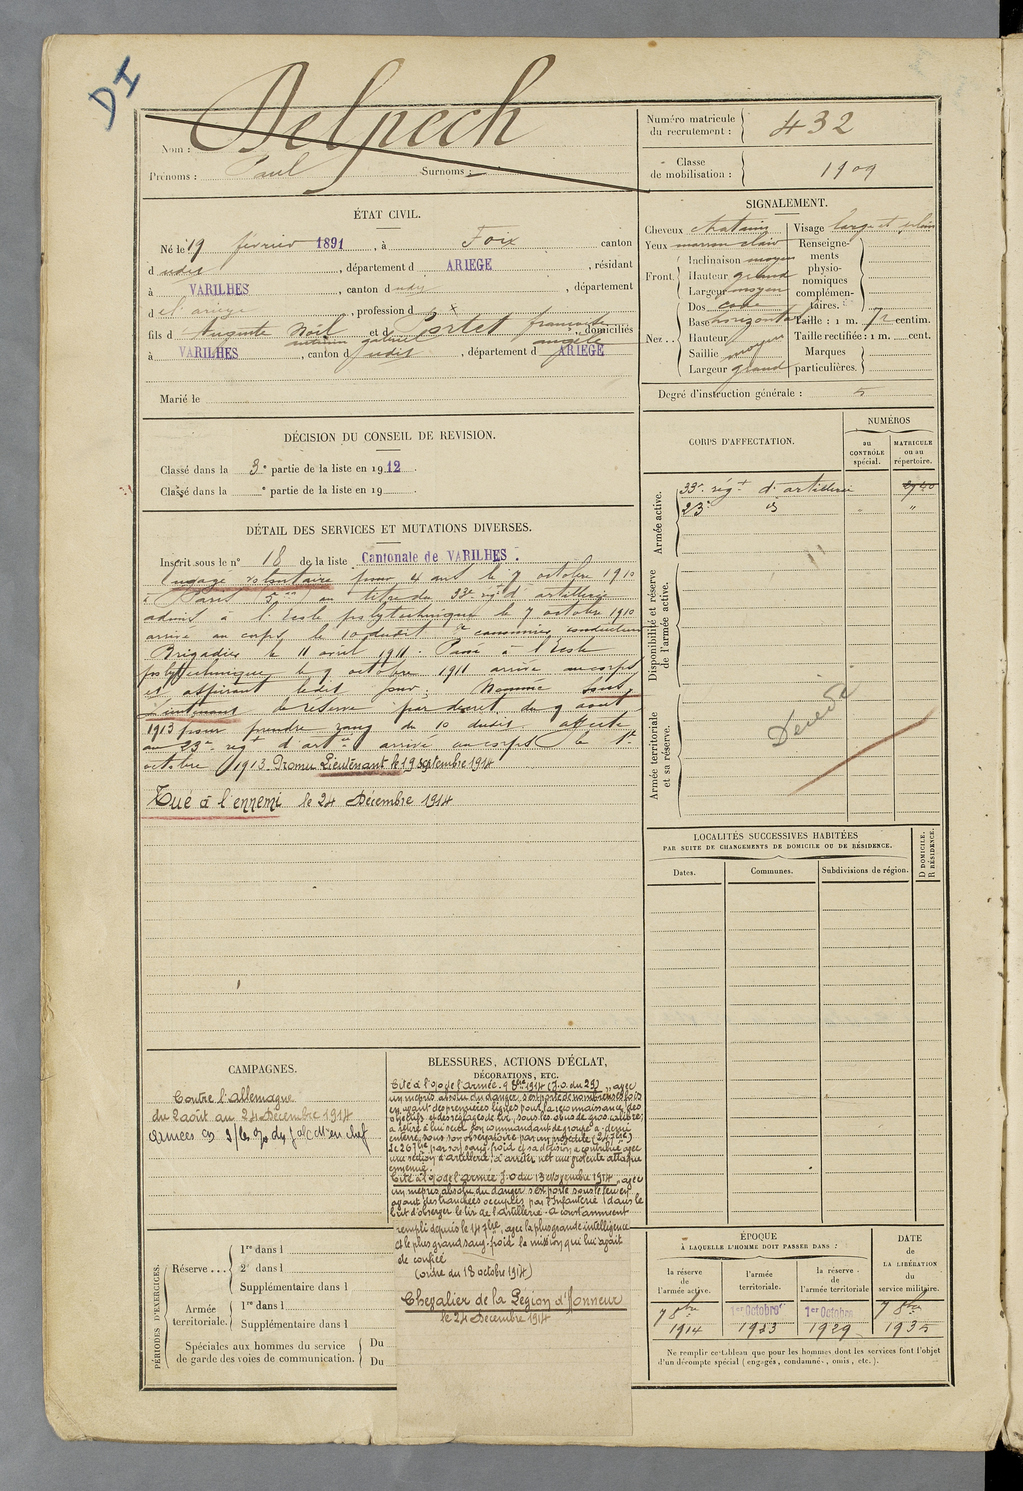 DI
Nom : Delpech
Prénoms : Paul Surnoms :
Numéro matricule du recrutement : 432
Classe de mobilisation : 1909
ÉTAT CIVIL.
Né le 19 février 1891, à Foix canton
d udit, département d ARIEGE, résidant
à VARILHES, canton dudit, département
d e l'ariège, profession d x
fils d Auguste Noël antonin gabriel et de Portet françoise angèle, domiciliés
à VARILHES, canton d udit, département d ARIEGE
Marié le
SIGNALEMENT.
Cheveux chatains
Yeux marron clair
Front. Inclinaison moyen
Hauteur grand
Largeur moyen
Nez.. Dos
Base horizontal
Hauteur
Saillie moyen
Largeur grand
Visage large et plein
Renseignements physionomiques complémentaires.
Taille : 1 m. 72 centim.
Taille rectifiée : 1 m. cent.
Marques particulières.
Degré d'instruction générale : 5
DÉCISION DU CONSEIL DE REVISION.
Classé dans la 3e partie de la liste en 1912.
Classé dans la e partie de la liste en 19 .
CORPS D'AFFECTATION.
NUMÉROS
au CONTRÔLE spécial.
MATRICULE ou au répertoire.
Armée active.
33e régt d'artillerie 2940
23e d° " "
Disponibilité et réserve de l'armée active.
Armée territoriale et sa réserve.
Décédé
DÉTAIL DES SERVICES ET MUTATIONS DIVERSES.
Inscrit sous le n° 18 de la liste Cantonale de VARILHES.
Engagé volontaire pour 4 ans le 7 octobre 1910
à Paris 5e au titre du 33e régt d'artillerie
admis à l'Ecole polytechnique le 7 octobre 1910
arrivé au corps le 10 dudit 2e canonnier conducteur
Brigadier le 11 avril 1911. Passé à l'Ecole
polytechnique le 9 octobre 1911 arrivé au corps
et aspirant ledit jour. Nommé Sous
Lieutenant de réserve par décret du 9 aout
1913 pour prendre rang du 10 dudit affecté
au 23e régt d'artie arrivé au corps le 1er
octobre 1913. Promu Lieutenant le 19 septembre 1914
Tué à l'ennemi le 24 Décembre 1914
LOCALITÉS SUCCESSIVES HABITÉES
PAR SUITE DE CHANGEMENTS DE DOMICILE OU DE RÉSIDENCE.
Dates.
Communes.
Subdivisions de région.
D DOMICILE.
R RÉSIDENCE.
CAMPAGNES.
Contre l'allemagne
du 2 août au 24 Décembre 1914
BLESSURES, ACTIONS D'ÉCLAT,
DÉCORATIONS, ETC.
Cité à l'o/ de l'armée 9 8bre 1914 (J.O. du 29) "avec
un mépris absolu du danger, s'est porté de nombreuses fois
en avant des premières lignes pour la reconnaissance des
objectifs et des réglages de tir, sous les obus de gros calibre;
a retiré à lui seul son commandant de groupe à demi
enterré sous son observatoire par un projectile (24 7bre)
Le 26 7bre par son sang froid et sa décision a contribué avec
une section d'artillerie à arrêter net une violente attaque
ennemie.
Cité à l'o/ de l'armée J.O du 13 Novembre 1914 "avec
un mépris absolu du danger s'est porté sous le feu en
avant des tranchées occupées par l'infanterie dans le
but d'observer le tir de l'artillerie. A constamment
rempli depuis le 14 7bre, avec la plus grande intelligence
et le plus grand sang froid la mission qui lui avait
été confiée
(ordre du 18 octobre 1914)
Chevalier de la Légion d'Honneur
le 24 Décembre 1914
PÉRIODES D'EXERCICES.
Réserve... 1re dans l
2e dans l
Supplémentaire dans l
Armée territoriale. 1re dans l
Supplémentaire dans l
Spéciales aux hommes du service de garde des voies de communication. Du
Du
ÉPOQUE
À LAQUELLE L'HOMME DOIT PASSER DANS :
la réserve de l'armée active.
l'armée territoriale.
la réserve de l'armée territoriale
DATE de LA LIBÉRATION du service militaire.
7 8bre 1914
1er Octobre 1923
1er Octobre 1929
7 8bre 1935
Ne remplir ce tableau que pour les hommes dont les services font l'objet
d'un décompte spécial (engagés, condamnés, omis, etc.).